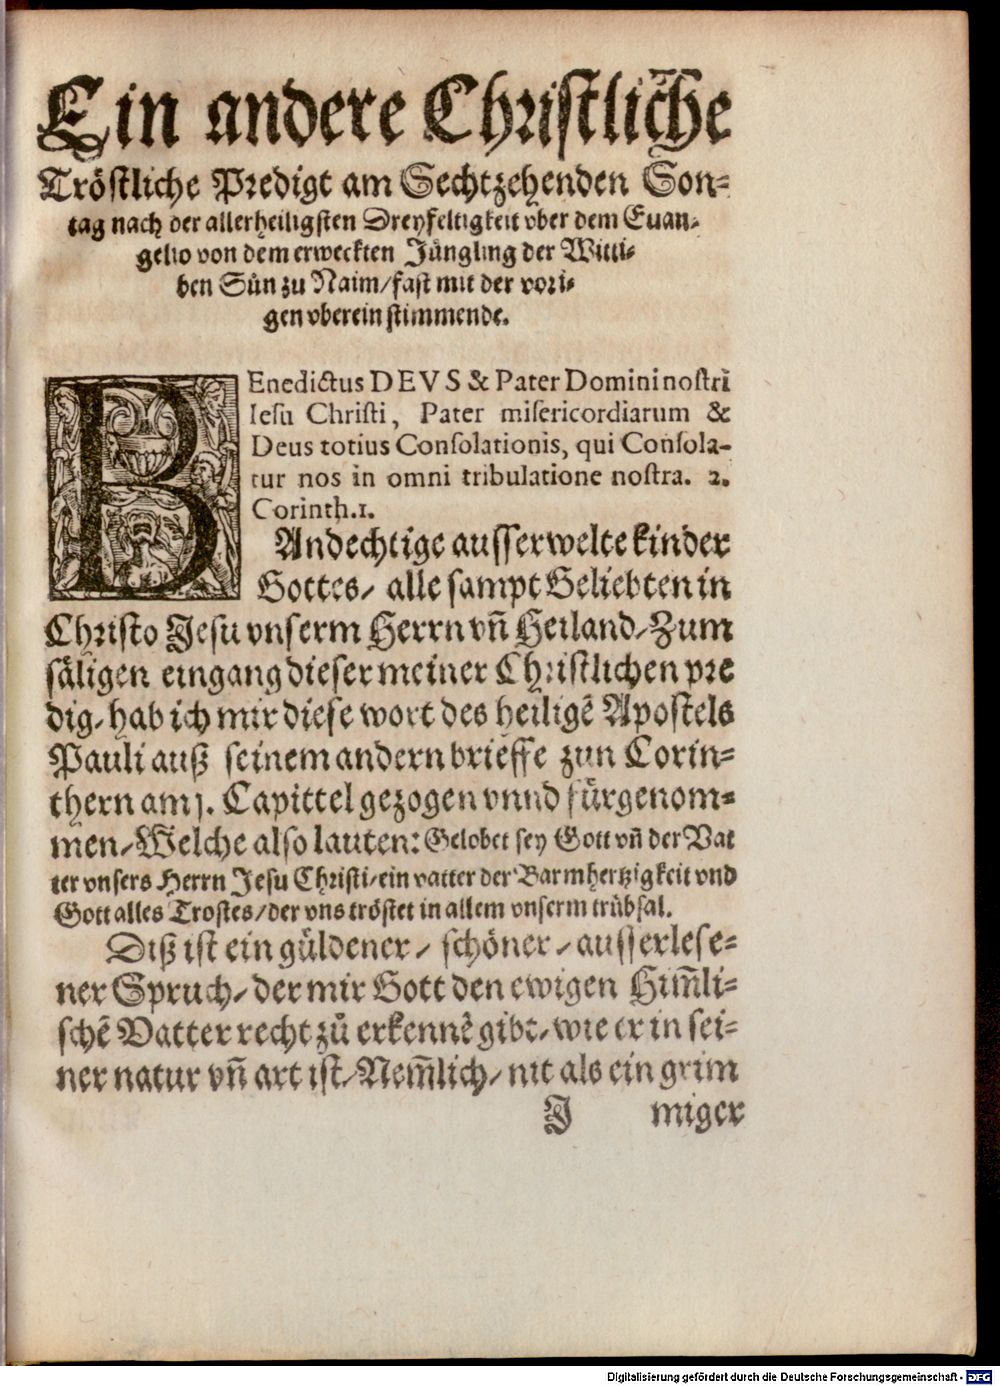 Ein andere Christliche
Tröstliche Predigt am Sechtzehenden Son⸗
tag nach der allerheiligsten Dreyfeltigkeit vber dem Euan⸗
gelio von dem erweckten Jüngling der Witti⸗
ben Sün zu Naim/fast mit der vori⸗
gen vberein stimmende.
BEnedictus DEVS & Pater Domini nostri
Iesu Christi, Pater misericordiarum &
Deus totius Consolationis, qui Consola-
tur nos in omni tribulatione nostra. 2.
Corinth.1.
Andechtige ausserwelte kinder
Gottes/ alle sampt Geliebten in
Christo Jesu vnserm Herrn vñ Heiland/Zum
säligen eingang dieser meiner Christlichen pre
dig/hab ich mir diese wort des heiligẽ Apostels
Pauli auß seinem andern brieffe zun Corin⸗
thern am j. Capittel gezogen vnnd fürgenom⸗
men/Welche also lauten: Gelobet sey Gott vñ der Vat
ter vnsers Herrn Jesu Christi/ein vatter der Barmhertzigkeit vnd
Gott alles Trostes/der vns tröstet in allem vnserm trübsal.
Diß ist ein güldener/ schöner/ausserlese⸗
ner Spruch/der mir Gott den ewigen Him̃li⸗
schẽ Vatter recht zů erkennẽ gibt/wie er in sei⸗
ner natur vñ art ist/Nem̃lich/nit als ein grim
J miger
Digitalisierung gefördert durch die Deutsche Forschungsgemeinschaft - DFG